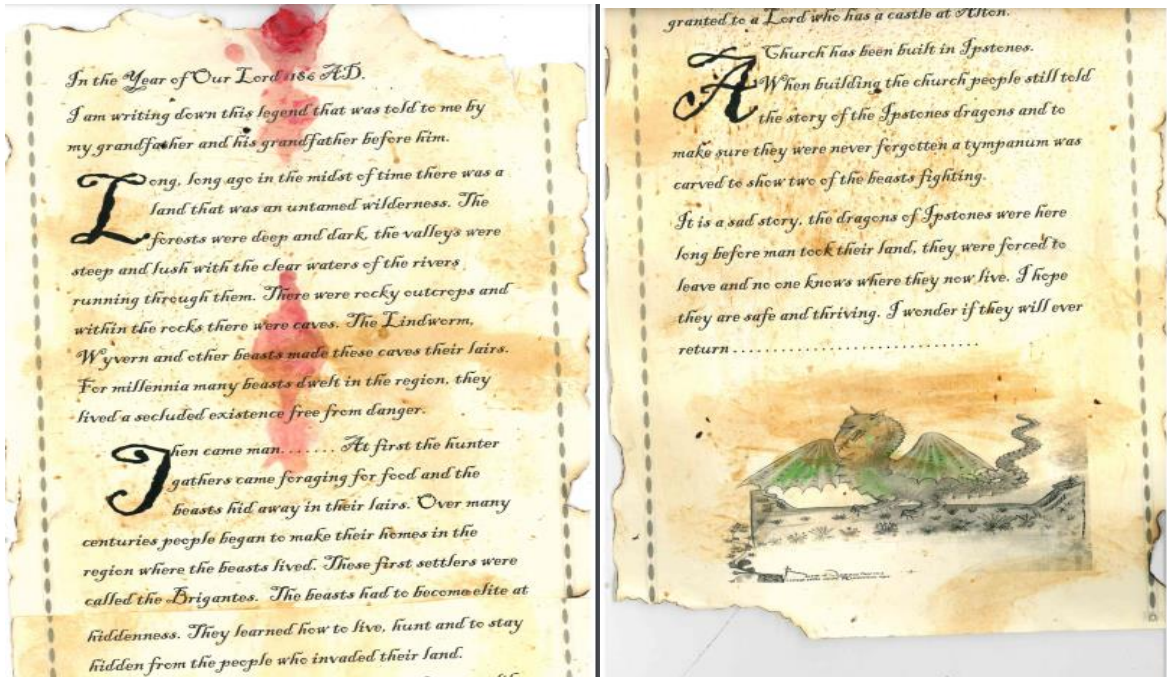 In the Year of Our Lord 1186 AD.
I am writing down this legend that was told to me by
my grandfather and his grandfather before him.
Long, long ago in the midst of time there was a
land that was an untamed wilderness. The
forests were deep and dark, the valleys were
steep and lush with the clear waters of the rivers
running through them. There were rocky outcrops and
within the rocks there were caves. The Lindworm,
Wyvern and other beasts made these caves their lairs.
For millennia many beasts dwelt in the region, they
lived a secluded existence free from danger.
Then came man....... At first the hunter
gathers came foraging for food and the
beasts hid away in their lairs. Over many
centuries people began to make their homes in the
region where the beasts lived. These first settlers were
called the Brigantes. The beasts had to become elite at
hiddenness. They learned how to live, hunt and to stay
hidden from the people who invaded their land.
granted to a Lord who has a castle at Alton.
A Church has been built in Ipstones.
When building the church people still told
the story of the Ipstones dragons and to
make sure they were never forgotten a tympanum was
carved to show two of the beasts fighting.
It is a sad story, the dragons of Ipstones were here
long before man took their land, they were forced to
leave and no one knows where they now live. I hope
they are safe and thriving. I wonder if they will ever
return..............................